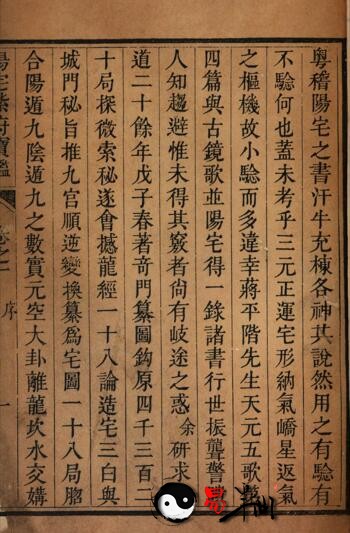 粤稽陽宅之書汗牛充棟各神其說然用之有驗有
不驗何也蓋未考乎三元正運宅形納氣嶠星返氣
之樞機故小驗而多違幸蔣平階先生天元五歌
四篇與古鏡歌並陽宅得一錄諸書行世振聾警
人知趨避惟未得其竅者尚有岐途之惑余研求
道二十餘年戊子春著奇門纂圖鈎原四千三百二
十局探微索秘遂會撼龍經一十八論造宅三白與
城門秘旨推九宮順逆變換纂為宅圖一十八局脗
合陽遁九陰遁九之數實元空大卦離龍坎水交媾
陽宅紫府寶鑑
卷之一
序
一